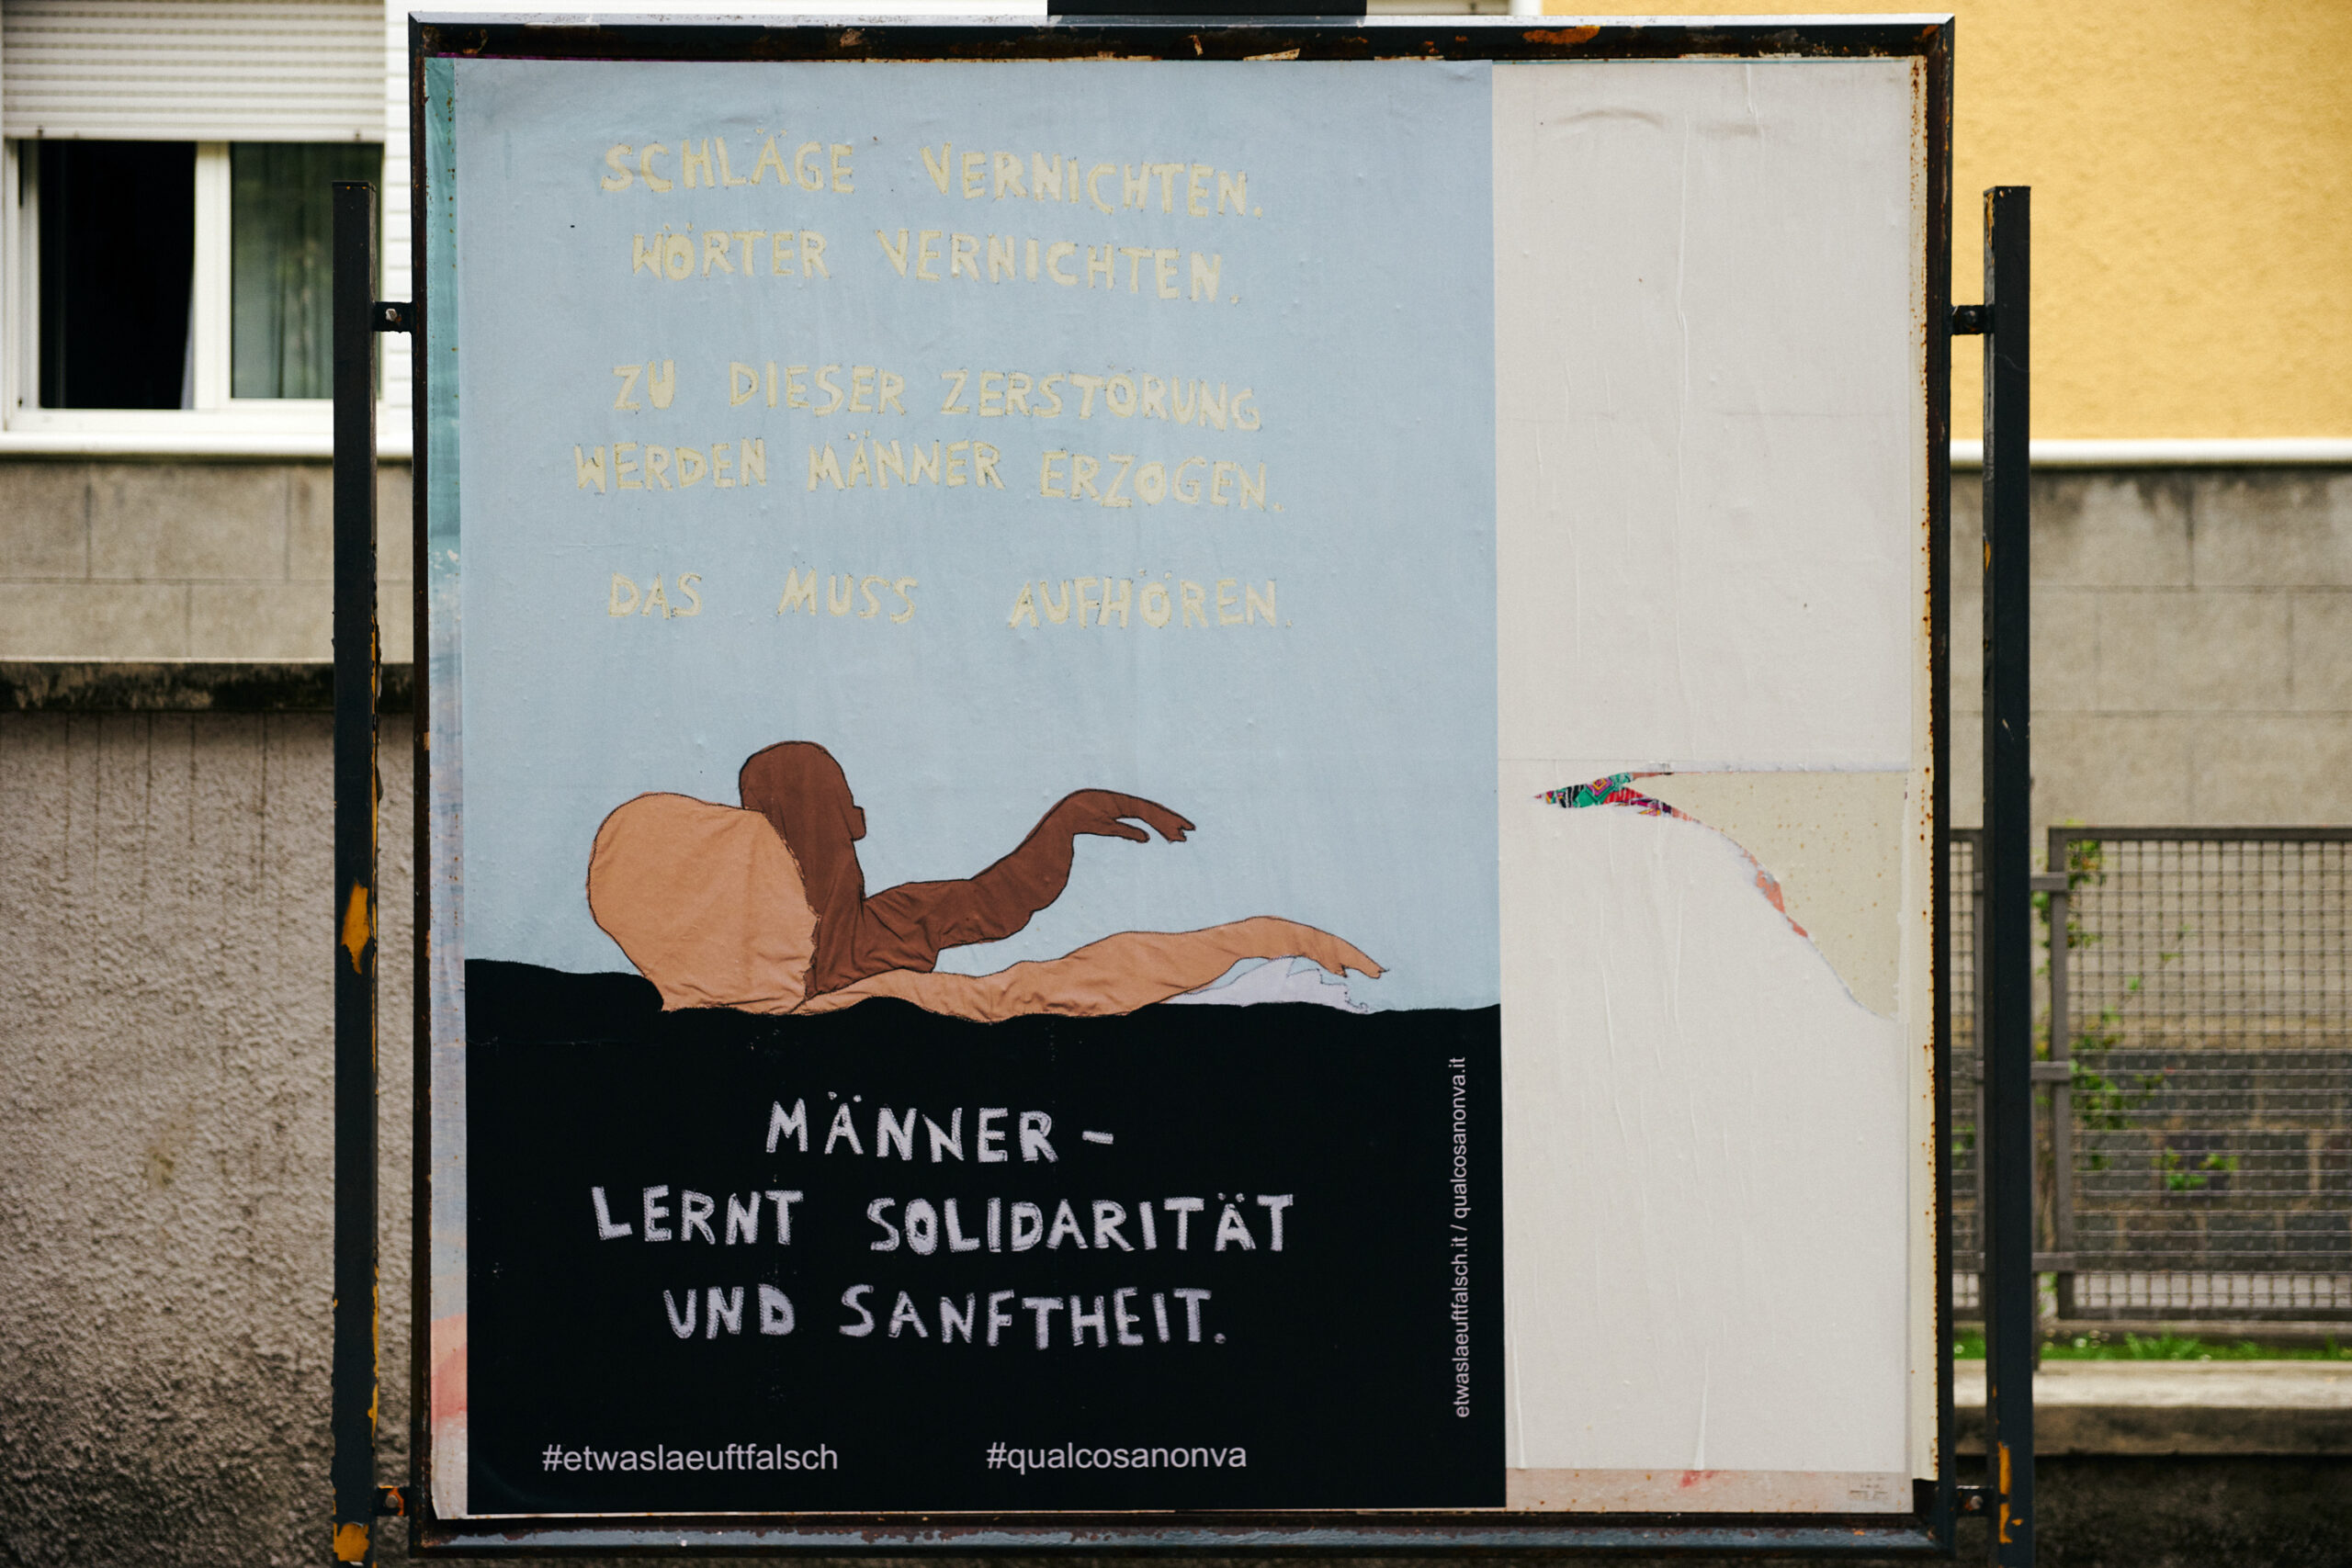 SCHLÄGE VERNICHTEN.
WÖRTER VERNICHTEN.
ZU DIESER ZERSTÖRUNG
WERDEN MÄNNER ERZOGEN.
DAS MUSS AUFHÖREN.
MÄNNER –
LERNT SOLIDARITÄT
UND SANFTHEIT.
#etwaslaeuftfalsch #qualcosanonva
etwaslaeuftfalsch.it / qualcosanonva.it